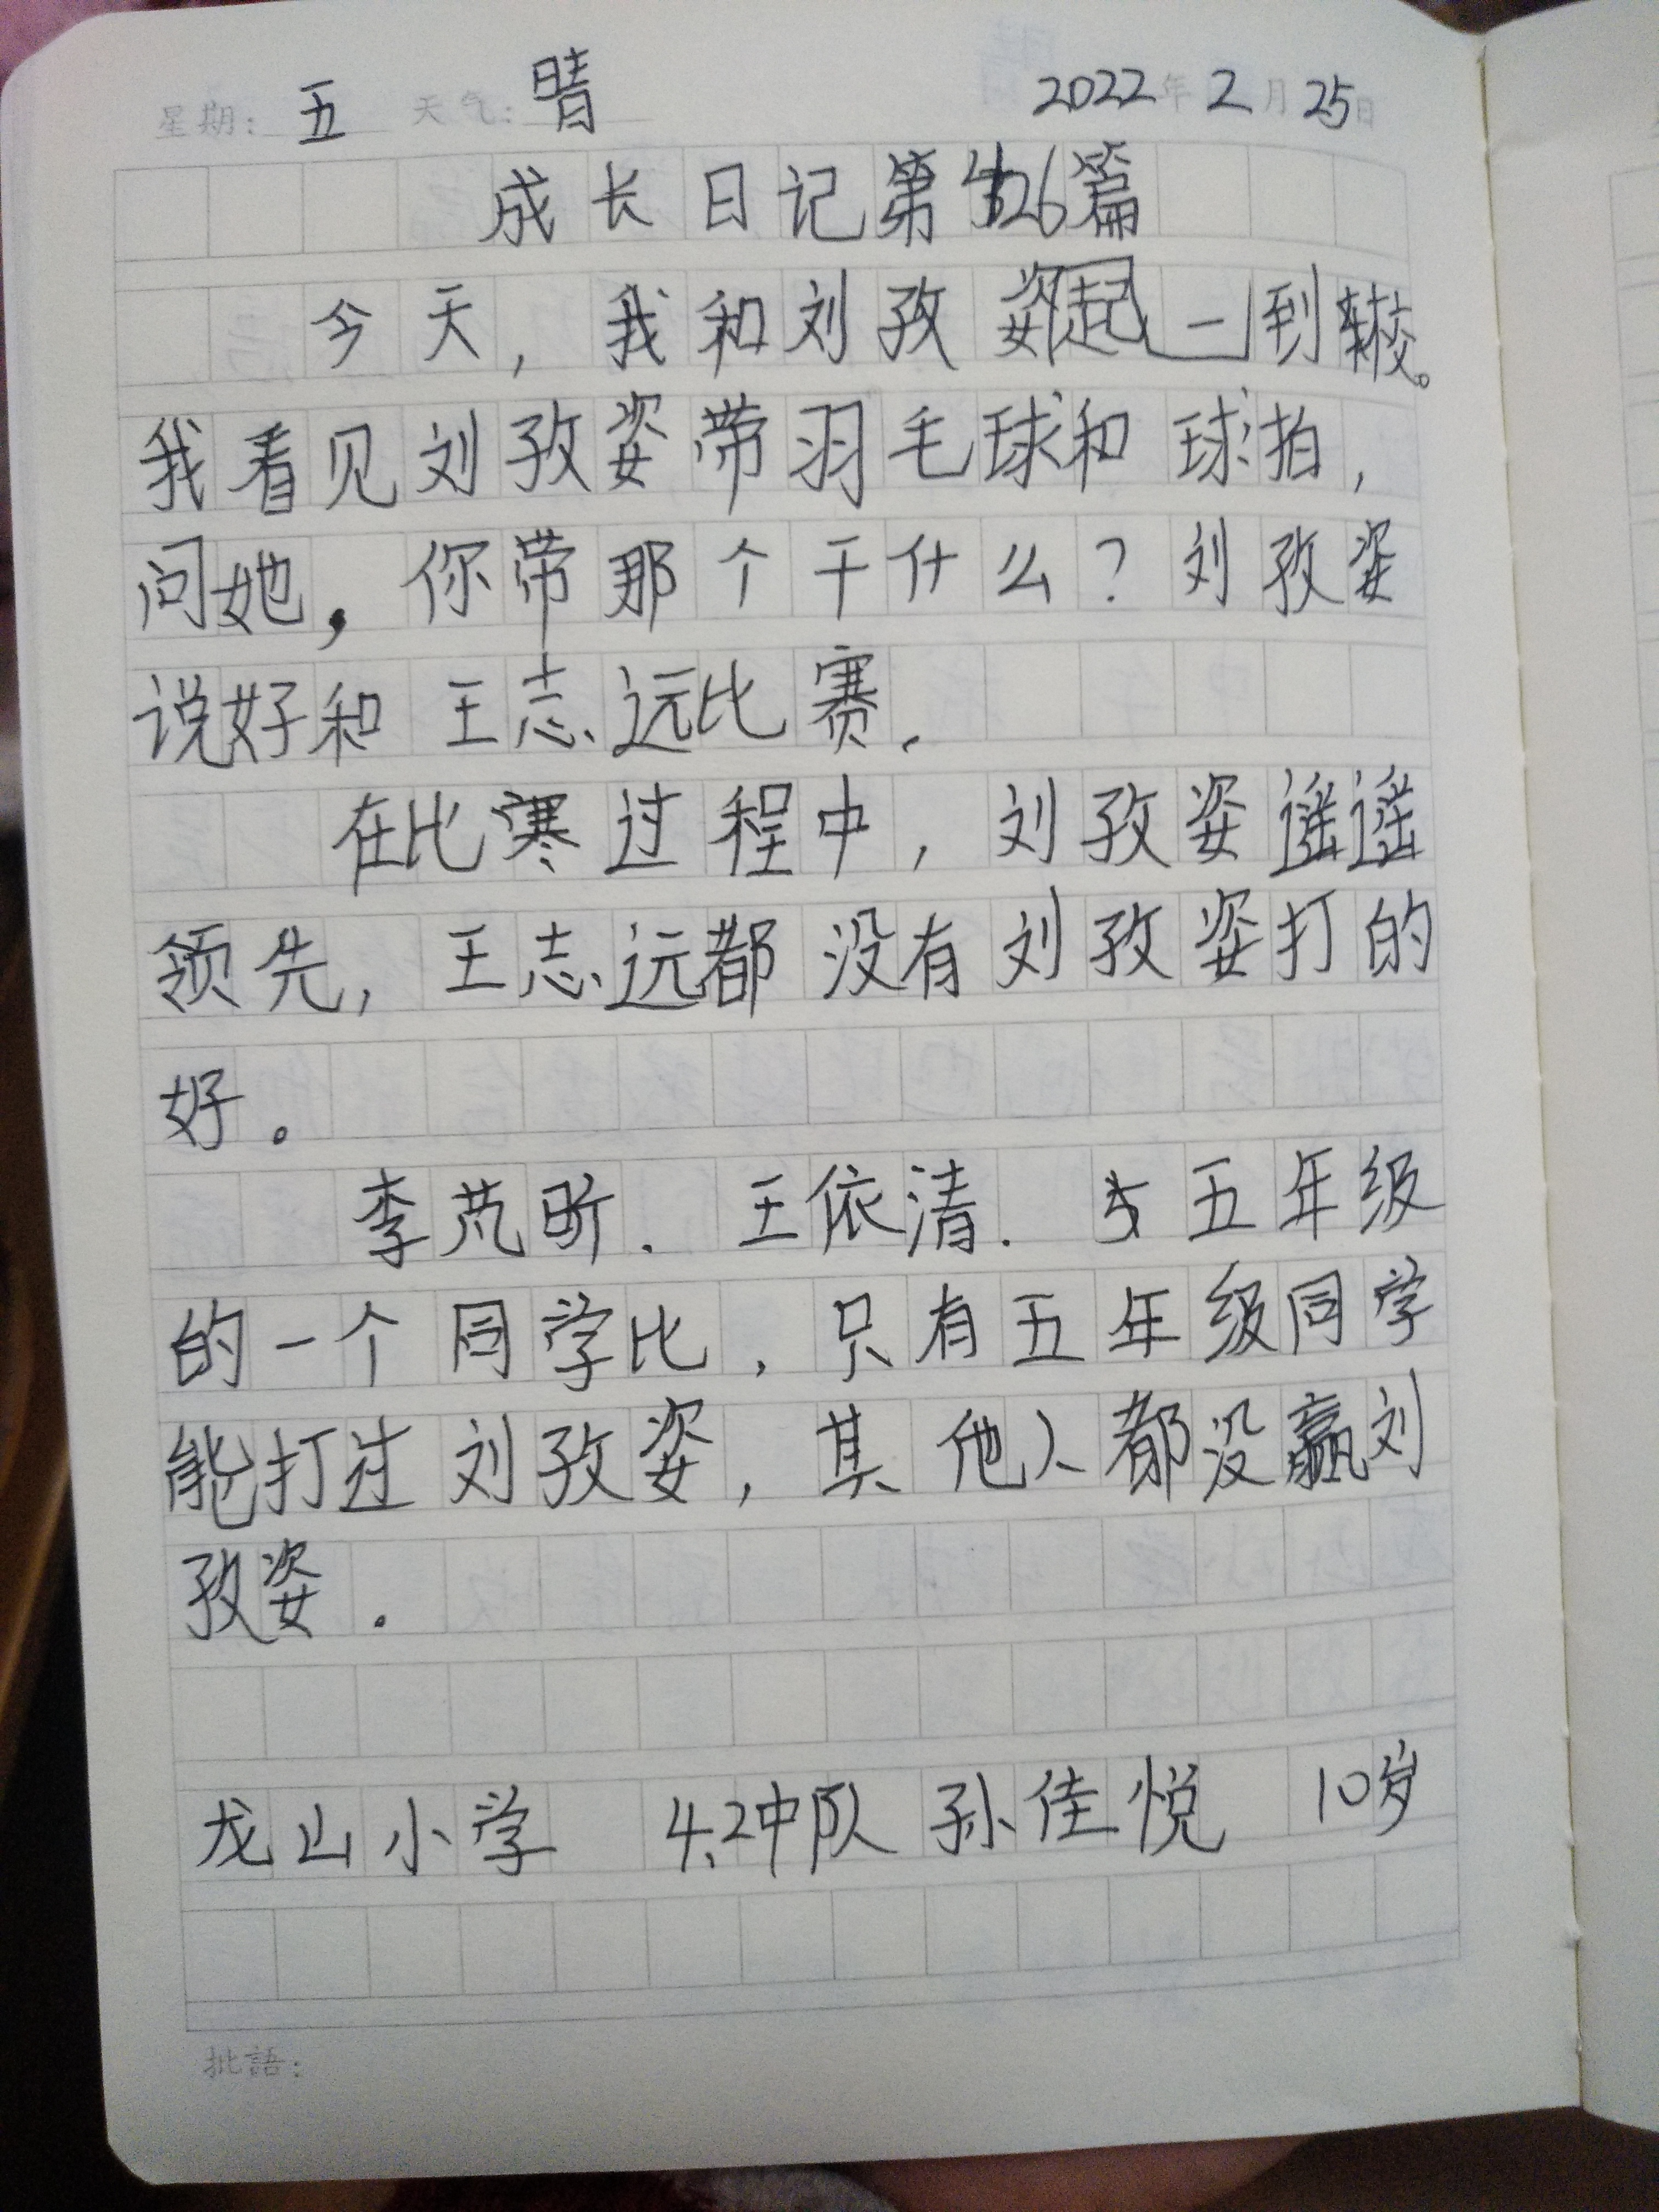 星期：五 天气：晴 2022年2月25日
成长日记第126篇
今天，我和刘孜姿起一到校。
我看见刘孜姿带羽毛球和球拍，
问她，你带那个干什么？刘孜姿
说好和王志远比赛.
在比寒过程中，刘孜姿遥遥
领先，王志远都没有刘孜姿打的
好。
李芃昕.王依清.与五年级
的一个同学比，只有五年级同学
能打过刘孜姿，其他人都没赢刘
孜姿.
龙山小学 4.2中队 孙佳悦 10岁
批語：